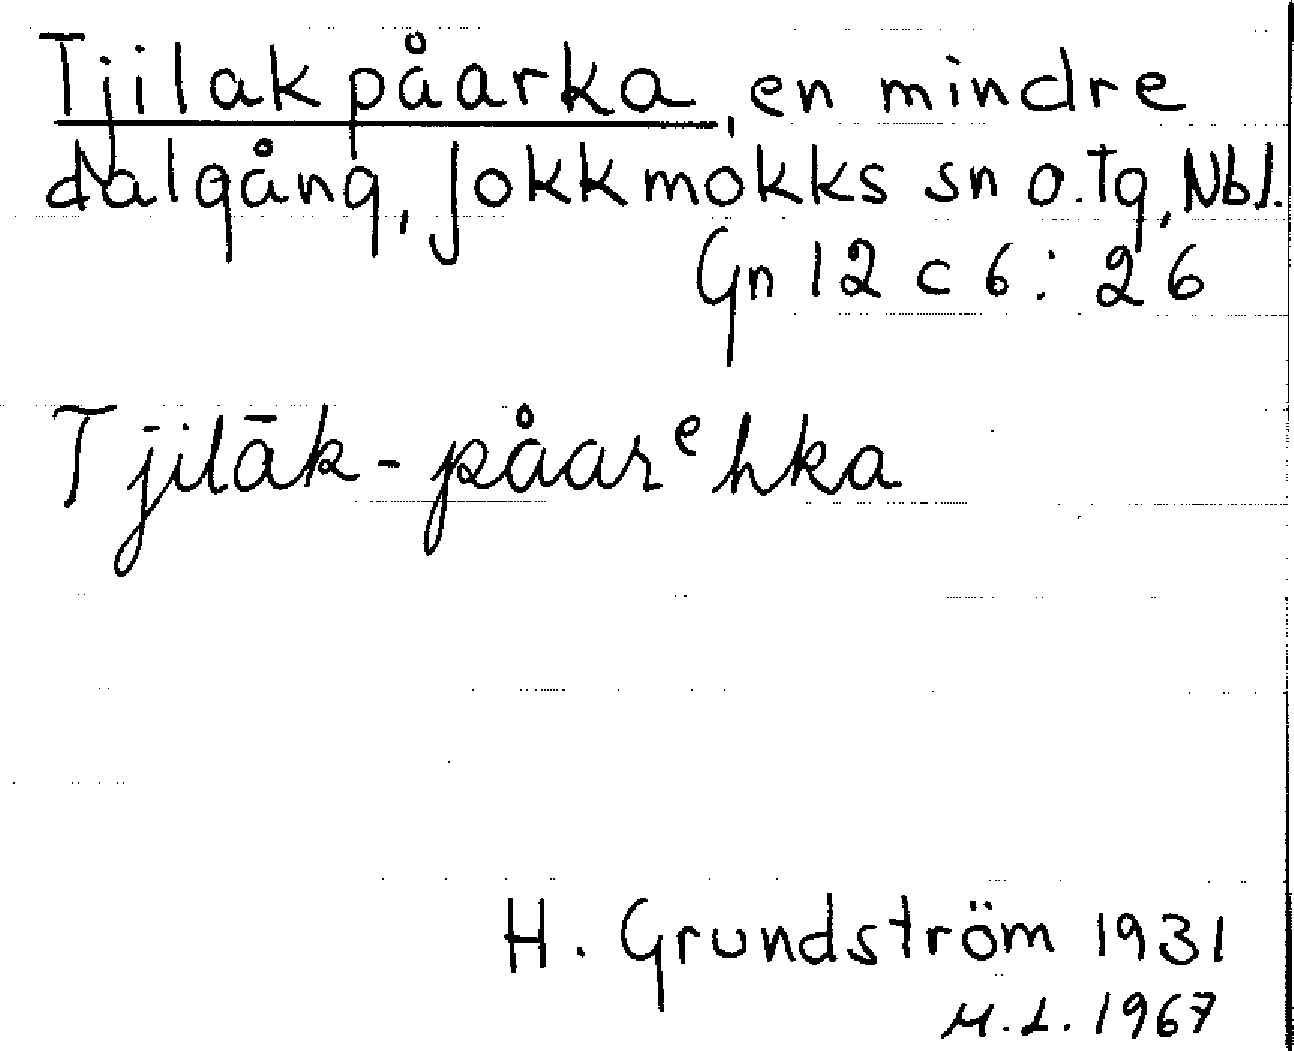 Tjilakpåarka, en mindre
dalgång, Jokkmokks sn o. tg, Nbl.
Gn 12 c 6: 26
Tjilāk-påarᵉhka
H. Grundström 1931
M.L. 1967